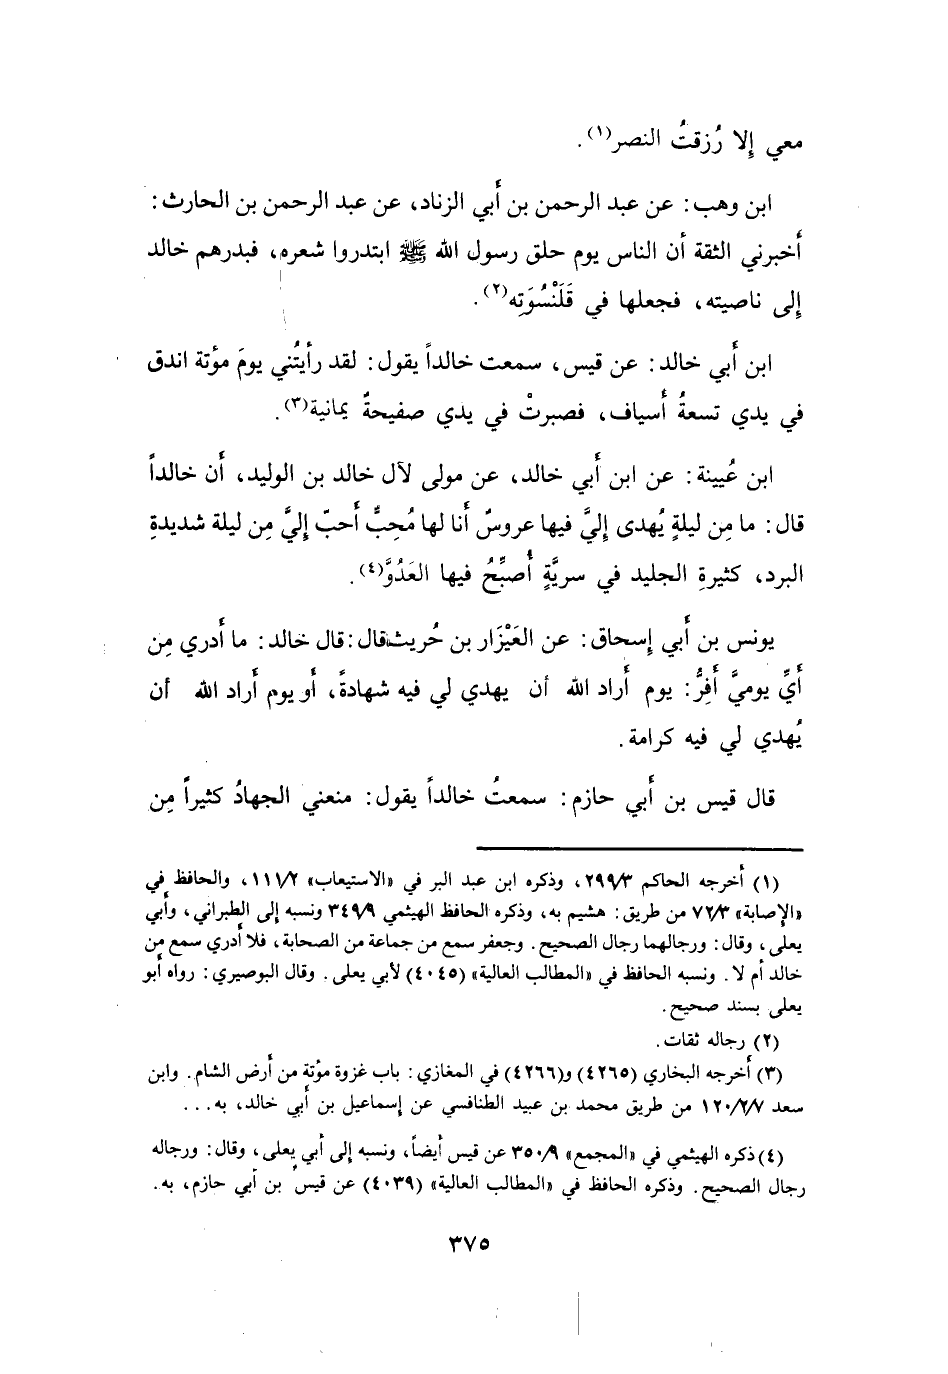 معي إلا رُزقتُ النصر(١).
ابن وهب: عن عبد الرحمن بن أبي الزناد، عن عبد الرحمن بن الحارث:
أخبرني الثقة أن الناس يوم حلق رسول الله ﷺ ابتدروا شعره، فبدرهم خالد
إلى ناصيته، فجعلها في قَلَنْسُوَته(٢).
ابن أبي خالد: عن قيس، سمعت خالداً يقول: لقد رأيتُني يومَ مؤتة اندق
في يدي تسعةُ أسياف، فصبرتْ في يدي صفيحةٌ يمانية(٣).
ابن عُيينة: عن ابن أبي خالد، عن مولى لآل خالد بن الوليد، أن خالداً
قال: ما مِن ليلةٍ يُهدى إليَّ فيها عروسٌ أنا لها مُحِبٌّ أحبّ إليَّ مِن ليلة شديدةِ
البرد، كثيرةِ الجليد في سريَّةٍ أُصبِّحُ فيها العَدُوَّ(٤).
يونس بن أبي إسحاق: عن العَيْزَار بن حُريث، قال: قال خالد: ما أدري مِن
أيِّ يوميَّ أَفِرُّ: يوم أراد الله أن يهدي لي فيه شهادةً، أو يوم أراد الله أن
يُهدي لي فيه كرامة.
قال قيس بن أبي حازم: سمعتُ خالداً يقول: منعني الجهادُ كثيراً مِن
(١) أخرجه الحاكم ٢٩٩/٣، وذكره ابن عبد البر في «الاستيعاب» ١١١/٢، والحافظ في
«الإصابة» ٧٢/٣ من طريق: هشيم به، وذكره الحافظ الهيثمي ٣٤٩/٩ ونسبه إلى الطبراني، وأبي
يعلى، وقال: ورجالهما رجال الصحيح. وجعفر سمع من جماعة من الصحابة، فلا أدري سمع من
خالد أم لا. ونسبه الحافظ في «المطالب العالية» (٤٠٤٥) لأبي يعلى. وقال البوصيري: رواه أبو
يعلى بسند صحيح.
(٢) رجاله ثقات.
(٣) أخرجه البخاري (٤٢٦٥) و(٤٢٦٦) في المغازي: باب غزوة مؤتة من أرض الشام. وابن
سعد ١٢٠/٢/٧ من طريق محمد بن عبيد الطنافسي عن إسماعيل بن أبي خالد، به...
(٤) ذكره الهيثمي في «المجمع» ٣٥٠/٩ عن قيس أيضاً، ونسبه إلى أبي يعلى، وقال: ورجاله
رجال الصحيح. وذكره الحافظ في «المطالب العالية» (٤٠٣٩) عن قيس بن أبي حازم، به.
٣٧٥